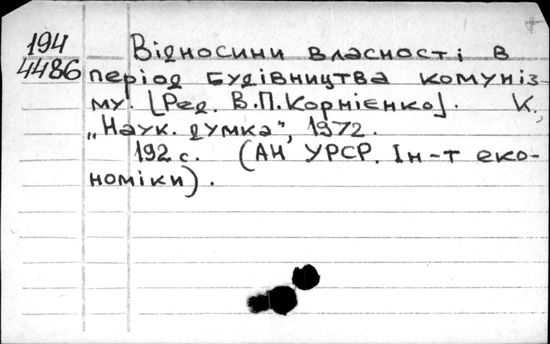 194
4486
Відносини власності в
період будівництва комуніз-
му. [Ред. В.П. Корнієнко]. К.,
„Наук. думка", 1972.
192 с. (АН УРСР. Ін-т еко-
номіки).